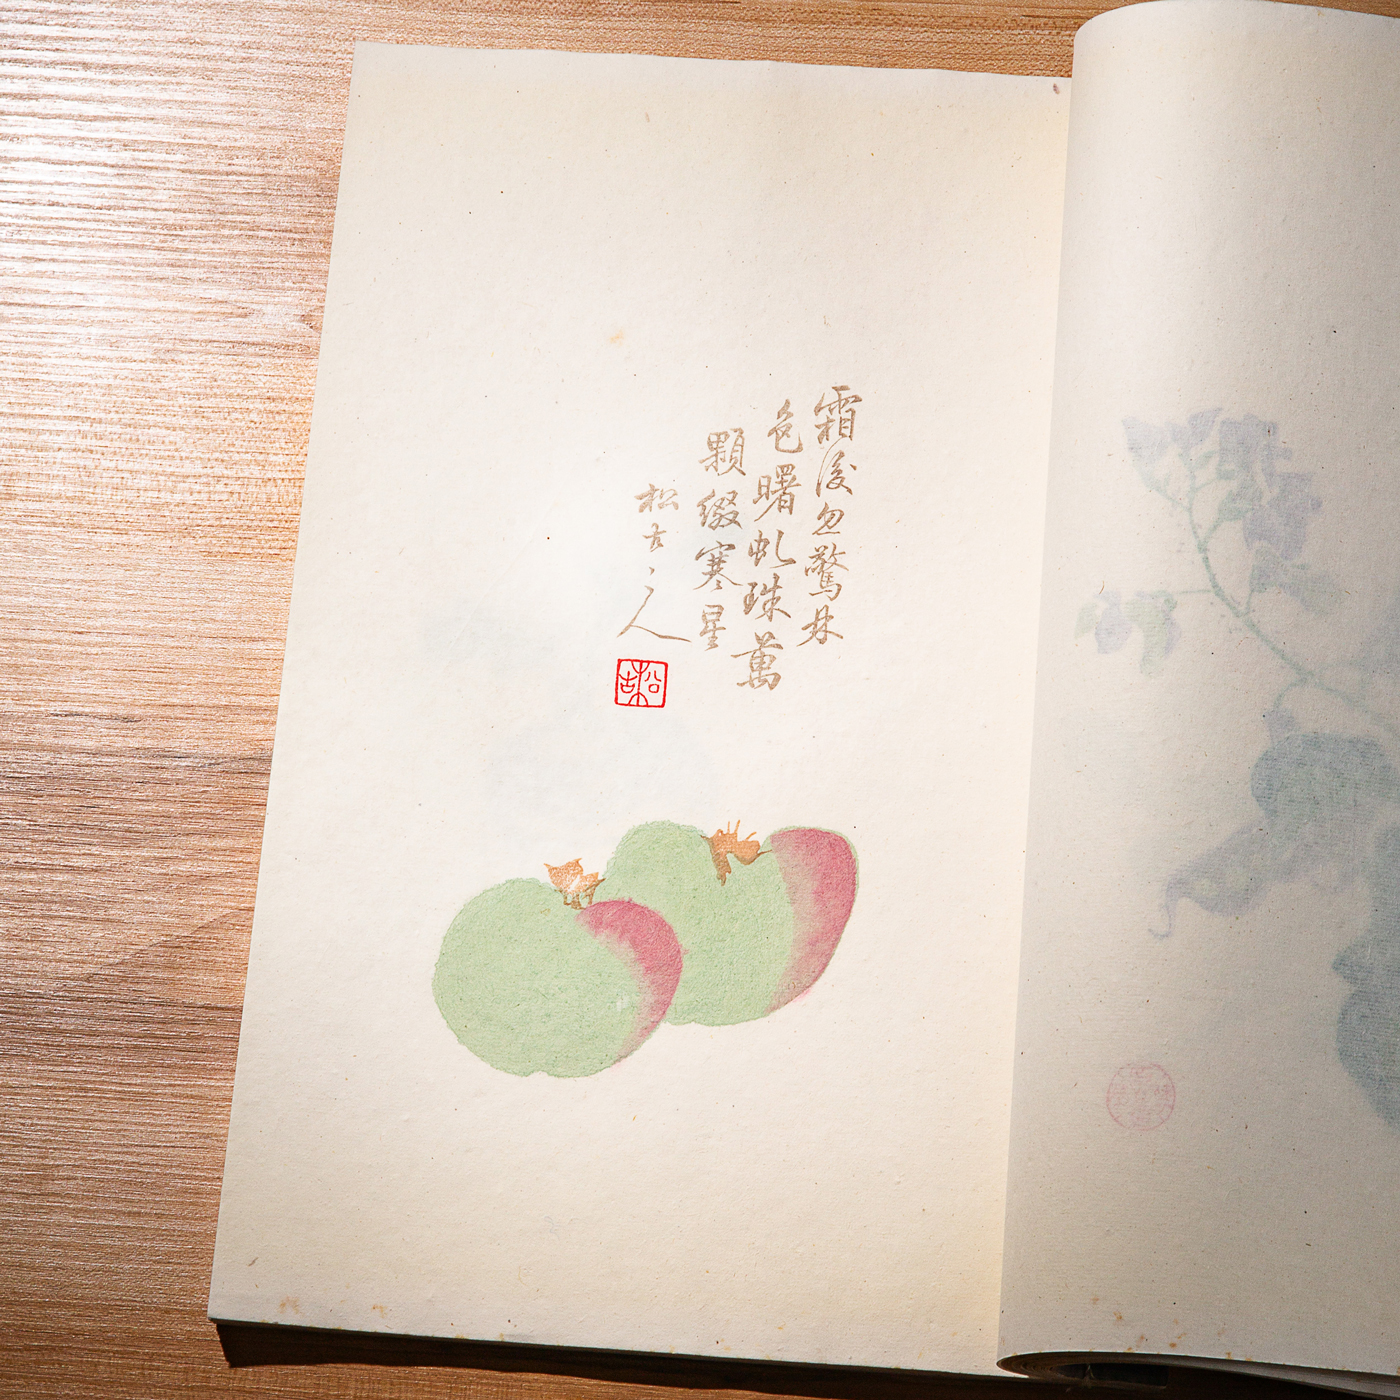 霜後忽驚林
色曙虬珠萬
顆綴寒星
松古人
松古